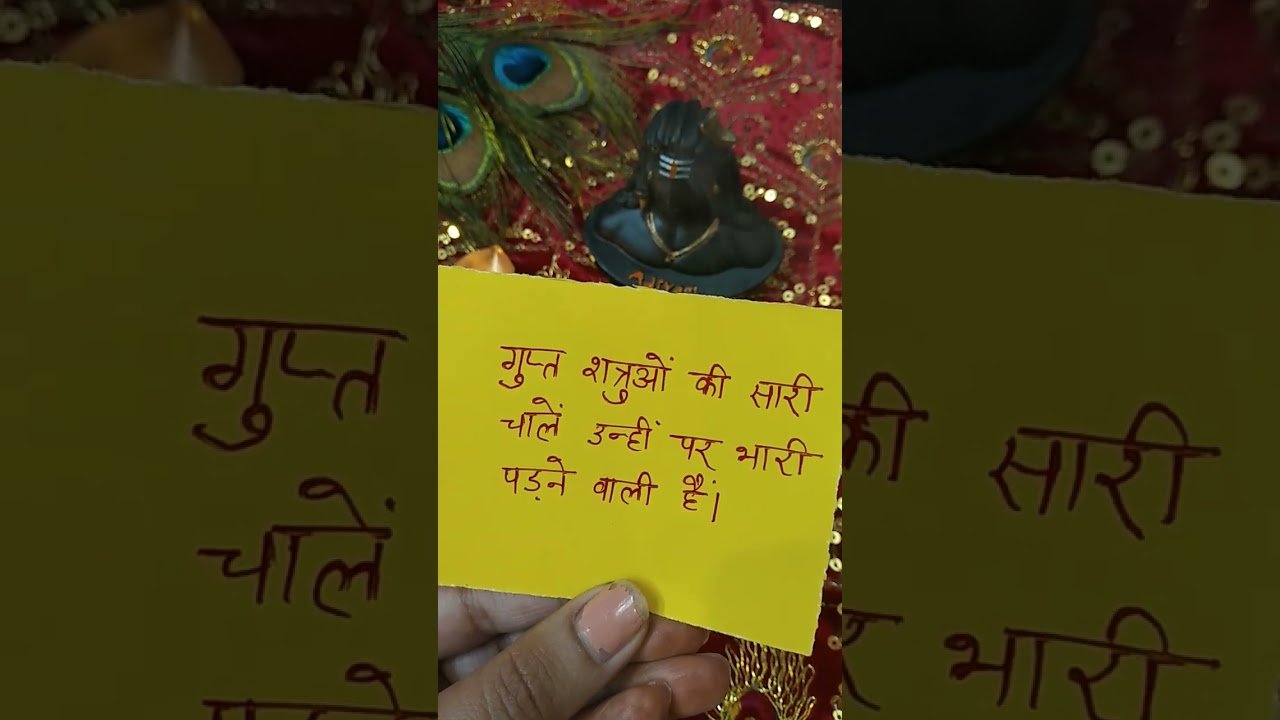 गुप्त शत्रुओं की सारी
चालें उन्हीं पर भारी
पड़ने वाली हैं।